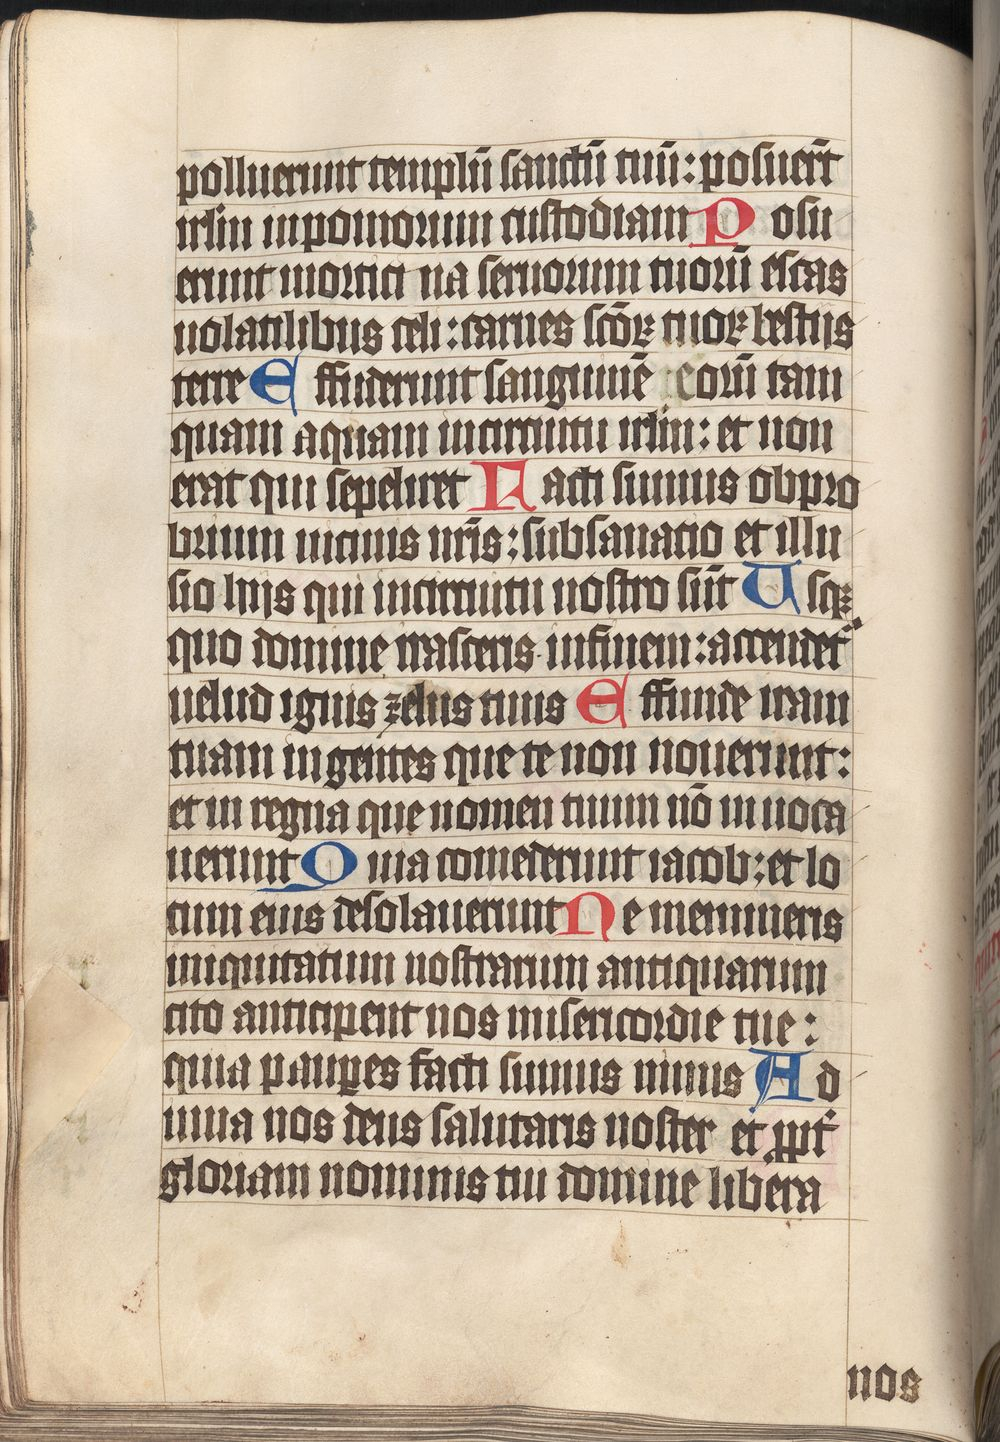 polluerunt templū sanctū tuū: posuerūt
irlm̄ in pomorum custodiam Posu
erunt morticina seruorum tuorū escas
uolatilibus celi: carnes sc̄oꝝ tuoꝝ bestiis
terre Effuderunt sanguinē eorū tam
quam aquam in circuitu irlm̄: et non
erat qui sepeliret Facti sumus obpro
brium uicinis nr̄is: subsanacio et illu
sio hiis qui in circuitu nostro sūt Usqꝫ
quo domine irasceris in finem: accendet᷑
uelud ignis zelus tuus Effunde iram
tuam in gentes que te non nouerunt:
et in regna que nomen tuum nō inuoca
uerunt Quia comederunt iacob: et lo
cum eius desolauerunt Ne memineris
iniquitatum nostrarum antiquarum
cito anticipent nos misericordie tue:
quia pauꝑes facti sumus nimis Ad
iuua nos deus salutaris noster et ꝓpt᷑
gloriam nominis tui domine libera
nos